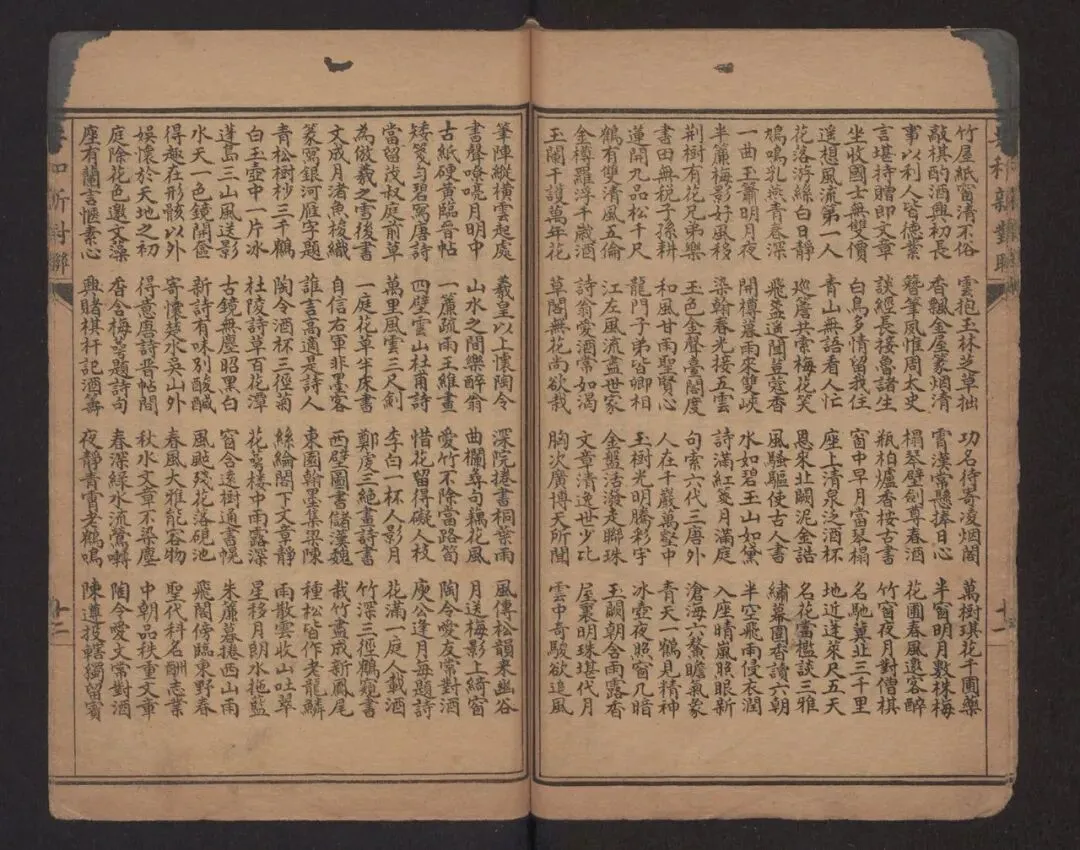 竹屋紙窗清不俗
敲棋酌酒興初長
事以利人皆德業
言堪持贈即文章
坐收國士無雙價
遙想風流第一人
花落游絲白日靜
鳩鳴乳燕青春深
一曲玉簫明月夜
半簾梅影好風移
荆樹有花兄弟樂
書田無稅子孫耕
蓮開九品松千尺
鶴有雙清風五倫
金樽羅浮千歲酒
玉闌干護萬年花
雲抱玉林芝草拙
香飄金屋篆烟清
簪筆風惟周太史
談經長接魯諸生
白鳥多情留我住
青山無語看人忙
巡簷共索梅花笑
飛盞遙聞荳蔻香
開樽暮雨來雙峽
染翰春光接五雲
玉色金聲臺閣度
和風甘雨聖賢心
龍門子弟皆卿相
江左風流盡世家
詩翁愛酒常如渴
草閣無花尚欲栽
功名待寄凌烟閣
霄漢常懸捧日心
榻琴壁劍尊春酒
瓶柏爐香按古書
窗中早月當琴榻
座上清泉泛酒杯
恩來北闕泥金誥
風騷驅使古人書
水如碧玉山如黛
詩滿紅箋月滿庭
句索六代三唐外
人在千巖萬壑中
玉樹光明騰彩宇
金盤活潑走聯珠
文章清逸世少比
胸次廣博天所開
萬樹琪花千圃藥
半窗明月數株梅
花圃春風邀客醉
竹窗夜月對僧棋
名馳冀北三千里
地近蓬萊尺五天
名花當檻談三雅
繡幕圍香讀六朝
半空飛雨侵衣潤
入座晴嵐照眼新
滄海六鰲瞻氣象
青天一鶴見精神
冰壺夜照窗几暗
玉闕朝含雨露香
屋裏明珠堪代月
雲中奇駿欲追風
十一
筆陣縱橫雲起處
書聲嘹亮月明中
古紙硬黃臨晉帖
矮箋勻碧寫唐詩
當留茂叔庭前草
為倣羲之雪後書
文成月渚魚梭織
篆寫銀河雁字題
青松樹杪三千鶴
白玉壺中一片冰
蓬島三山風送影
水天一色鏡開奩
得趣在形骸以外
娛懷於天地之初
庭除花色邀文藻
座有蘭言愜素心
羲皇以上懷陶令
山水之間樂醉翁
一簾疏雨王維畫
四壁雲山杜甫詩
萬里風雲三尺劍
一庭花草半床書
自信右軍非墨客
誰言高適是詩人
陶令酒杯三徑菊
杜陵詩草百花潭
古鏡無塵昭黑白
新詩有味別酸鹹
寄懷楚水吳山外
得意唐詩晉帖間
香含梅萼題詩句
興賭棋枰記酒籌
深院捲書桐葉雨
曲欄尋句藕花風
愛竹不除當路筍
惜花留得礙人枝
李白一杯人影月
鄭虔三絕畫詩書
西壁圖書儲漢魏
東園翰墨集梁陳
絲綸閣下文章靜
花萼樓中雨露深
窗含遠樹通書幌
風颭殘花落硯池
春風大雅能容物
秋水文章不染塵
春深綠水流鶯囀
夜靜青霄老鶴鳴
風傳松韻來幽谷
月送梅影上綺窗
陶令愛友常對酒
庾公逢月每題詩
花滿一庭人載酒
竹深三徑鶴窺書
栽竹盡成新鳳尾
種松皆作老龍鱗
雨散雲收山吐翠
星移月朗水拖藍
朱簾暮捲西山雨
飛閣傍臨東野春
聖代科名酬志業
中朝品秩重文章
陶令愛文常對酒
陳遵投轄獨留賓
十二